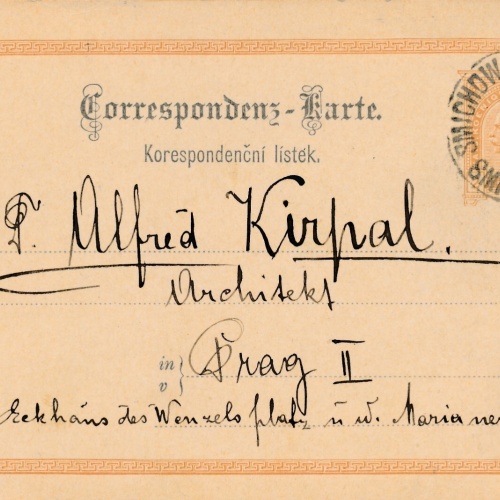 Correspondenz-Karte.
Korespondenční lístek.
SMICHOW
T. Alfréd Kirpal.
Architekt
in
v
Prag II
Eckhaus des Wenzelsplatz u w. Mariane